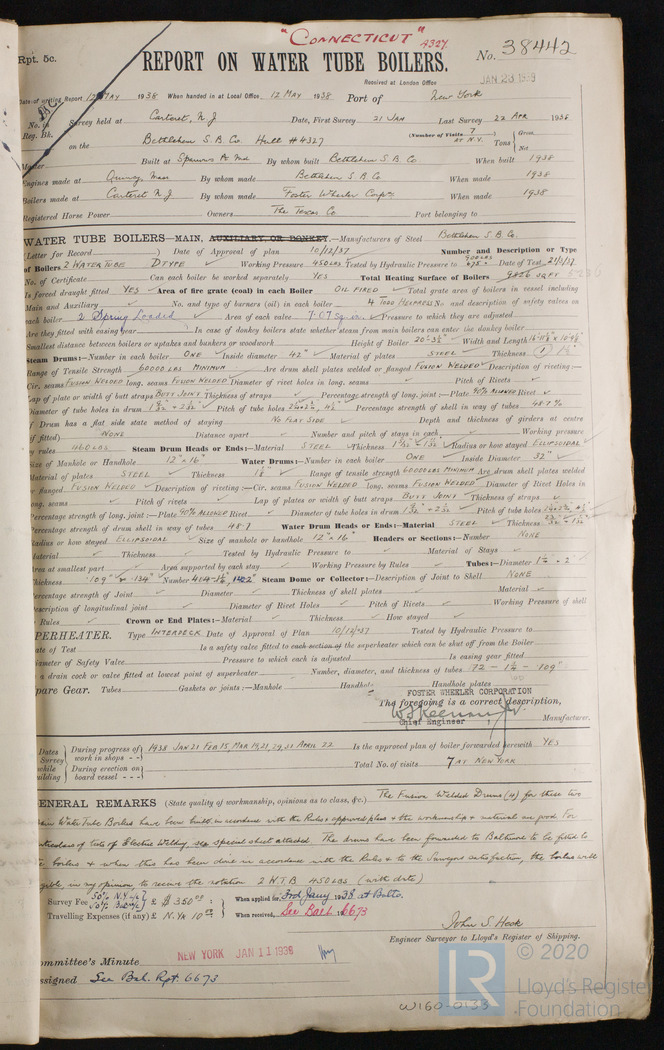 "CONNECTICUT" 4327.
Rpt. 5c. REPORT ON WATER TUBE BOILERS. No. 38442
Received at London Office JAN 23 1939
Date of writing Report 12 MAY 1938 When handed in at Local Office 12 MAY 1938 Port of New York
No. in Survey held at Carteret, N.J Date, First Survey 21 JAN Last Survey 22 APR 1938
Reg. Bk. (Number of Visits 7 AT N.Y.
on the Bethlehem S.B. Co. Hull #4327 Tons Gross Net
Master Built at Sparrows Pt Md By whom built Bethlehem S.B. Co. When built 1938
Engines made at Quincy, Mass By whom made Bethlehem S.B Co When made 1938
Boilers made at Carteret N.J. By whom made Foster Wheeler Corp'n When made 1938
Registered Horse Power Owners The Texas Co. Port belonging to
WATER TUBE BOILERS—MAIN, AUXILIARY, OR DONKEY.—Manufacturers of Steel Bethlehem S.B. Co.
(Letter for Record ) Date of Approval of plan 10/12/37 Number and Description or Type
of Boilers 2 WATER TUBE D TYPE Working Pressure 450 LBS Tested by Hydraulic Pressure to Date of Test
No. of Certificate Can each boiler be worked separately YES Total Heating Surface of Boilers 9826 SQ FT
Is forced draught fitted YES Area of fire grate (coal) in each Boiler OIL FIRED Total grate area of boilers in vessel including
Main and Auxiliary No. and type of burners (oil) in each boiler 4 TODD HEXPRESS No and description of safety valves on
each boiler 2 Spring Loaded Area of each valve 7.07 sq in Pressure to which they are adjusted
Are they fitted with easing gear In case of donkey boilers state whether steam from main boilers can enter the donkey boiler
Smallest distance between boilers or uptakes and bunkers or woodwork Height of Boiler Width and Length
Steam Drums:—Number in each boiler ONE Inside diameter 42" Material of plates STEEL Thickness
Range of Tensile Strength 60000 LBS MINIMUM Are drum shell plates welded or flanged FUSION WELDED Description of riveting:—
Cir. seams FUSION WELDED long. seams FUSION WELDED Diameter of rivet holes in long. seams Pitch of Rivets
Lap of plate or width of butt straps BUTT JOINT Thickness of straps Percentage strength of long. joint:—Plate 90% ALLOWED Rivet
Diameter of tube holes in drum Pitch of tube holes Percentage strength of shell in way of tubes 48.7%
If Drum has a flat side state method of staying NO FLAT SIDE Depth and thickness of girders at centre
(if fitted) NONE Distance apart Number and pitch of stays in each Working Pressure
by rules 460 LBS Steam Drum Heads or Ends:—Material STEEL Thickness Radius or how stayed ELLIPSOIDAL
Size of Manhole or Handhole 12" x 16" Water Drums:—Number in each boiler ONE Inside Diameter 32"
Material of plates STEEL Thickness Range of tensile strength 60000 LBS MINIMUM Are drum shell plates welded
or flanged FUSION WELDED Description of riveting:—Cir. seams FUSION WELDED long. seams FUSION WELDED Diameter of Rivet Holes in
long. seams Pitch of rivets Lap of plates or width of butt straps BUTT JOINT Thickness of straps
Percentage strength of long. joint:—Plate 90% ALLOWED Rivet Diameter of tube holes in drum Pitch of tube holes
Percentage strength of drum shell in way of tubes 48.7 Water Drum Heads or Ends:—Material STEEL Thickness
Radius or how stayed ELLIPSOIDAL Size of manhole or handhole 12" x 16" Headers or Sections:—Number NONE
Material Thickness Tested by Hydraulic Pressure to Material of Stays
Area at smallest part Area supported by each stay Working Pressure by Rules Tubes:—Diameter
Thickness .109" & .134" Number Steam Dome or Collector:—Description of Joint to Shell NONE
Percentage strength of Joint Diameter Thickness of shell plates Material
Description of longitudinal joint Diameter of Rivet Holes Pitch of Rivets Working Pressure of shell
by Rules Crown or End Plates:—Material Thickness How stayed
SUPERHEATER. Type INTERDECK Date of Approval of Plan 10/12/37 Tested by Hydraulic Pressure to
Date of Test Is a safety valve fitted to each section of the superheater which can be shut off from the Boiler
Diameter of Safety Valve Pressure to which each is adjusted Is easing gear fitted
Is a drain cock or valve fitted at lowest point of superheater Number, diameter, and thickness of tubes
Spare Gear. Tubes Gaskets or joints:—Manhole Handhole Handhole plates
FOSTER WHEELER CORPORATION
The foregoing is a correct description,
Chief Engineer Manufacturer.
Dates of Survey while building During progress of work in shops - - 1938 JAN 21 FEB 15, MAR 19, 21, 29, 31 APRIL 22 Is the approved plan of boiler forwarded herewith YES
During erection on board vessel - - - Total No. of visits 7 AT NEW YORK
GENERAL REMARKS (State quality of workmanship, opinions as to class, &c.) The Fusion Welded Drums (4) for these two
main Water Tube Boilers have been built in accordance with the Rules & approved plans & the workmanship & material are good. For
particulars of tests of Electric Welding, see special sheet attached. The drums have been forwarded to Baltimore to be fitted to
the boilers & when this has been done in accordance with the Rules & to the Surveyors satisfaction, the boilers will be
eligible, in my opinion, to receive the notation 2 W.T.B. 450 LBS (with date)
Survey Fee 50% N.Y. 50% Balto $350.00 When applied for, 3rd Jany 1938 at Balto.
Travelling Expenses (if any) N.Yk 10.00 When received, See Balt 6673
John S. Heck
Engineer Surveyor to Lloyd's Register of Shipping.
Committee's Minute NEW YORK JAN 11 1938
Assigned See Bal. Rpt. 6673
W160-0133
LR © 2020
Lloyd's Register
Foundation